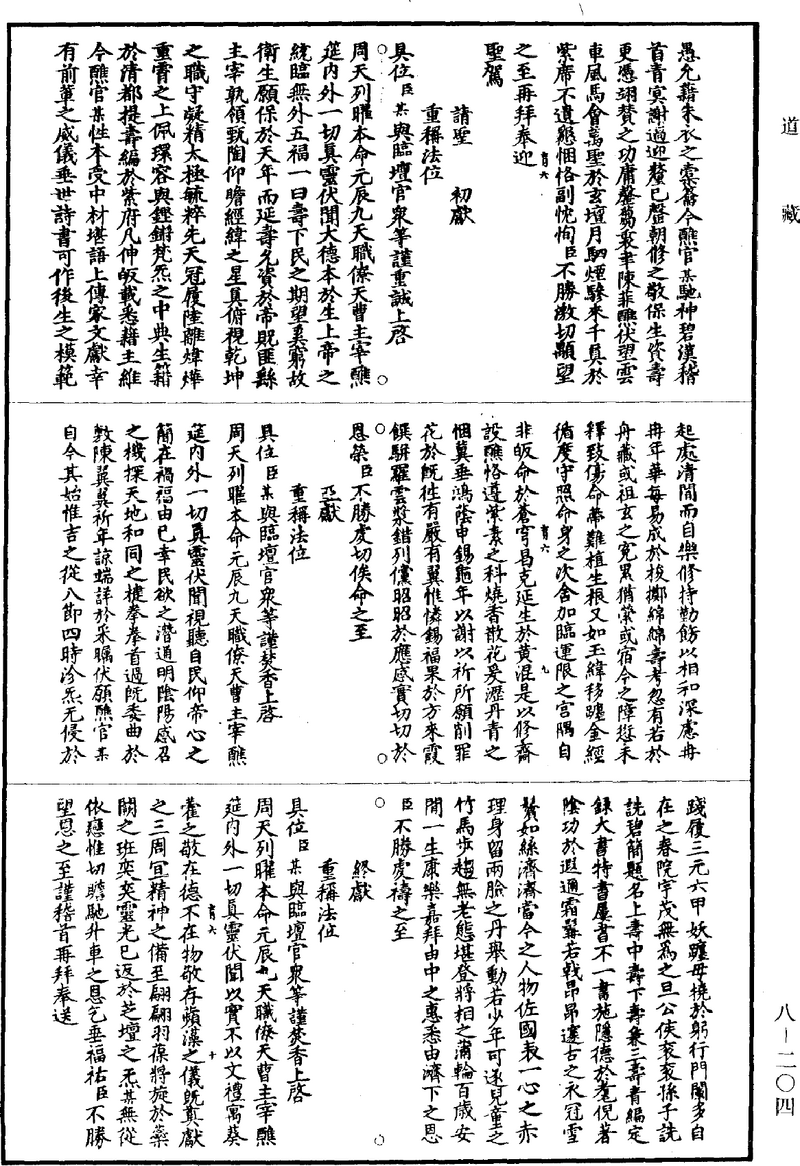 道藏
愚允藉朱衣之棠蔭今醮官某馳神碧漢稽
首青冥謝過迎釐已罄朝修之敬保生資壽
更憑翊贊之功肅馨蒭裏聿陳菲醮伏望雲
車風馬會萬聖於玄壇月駟煙驂來千真於
紫席不遺懇悃恪副忱恂臣不勝激切顒望
之至再拜奉迎
聖駕
請聖 初獻
重稱法位
具位臣某與臨壇官衆等謹重誠上啓
周天列曜本命元辰九天職僚天曹主宰醮
筵内外一切真靈伏聞大德本於生上帝之
統臨無外五福一曰壽下民之期望莫窮故
衛生願保於天年而延壽允資於帝貺匪繇
主宰孰領甄陶仰瞻經緯之星具俯視乾坤
之職守凝精太極毓粹先天冠履陸離煒燁
重霄之上佩環容與鏗鏘梵炁之中典生籍
於清都提壽編於紫府凡伸皈載悉藉主維
今醮官某性本受中材堪語上傳家文獻幸
有前輩之威儀垂世詩書可作後生之模範
起處清閒而自樂修持勤飭以相和深慮冉
冉年華每易成於梭擲綿綿壽考忽有若於
舟藏或祖玄之冤累猶縈或宿今之障愆未
釋致傷命蒂難植生根又如玉緯移躔金經
循度守照命身之次舍加臨運限之宮隅自
非皈命於蒼穹曷克延生於黄混是以修齋
設醮恪遵紫素之科燒香散花爰瀝丹青之
悃冀垂鴻蔭申錫龜年以謝以祈所願削罪
花於既往有嚴有翼惟憐錫福果於方來霞
饌駢羅雲漿錯列儻昭昭於應感實切切於
恩榮臣不勝虔切俟命之至
亞獻
重稱法位
具位臣某與臨壇官衆等謹焚香上啓
周天列曜本命元辰九天職僚天曹主宰醮
筵内外一切真靈伏聞視聽自民仰帝心之
簡在禍福由已幸民欲之潛通明陰陽感召
之機探天地和同之揵拳拳首過既委曲於
敷陳翼翼祈年諒端詳於采矚伏願醮官某
自今其始惟吉之從八節四時沴炁无侵於
踐履三元六甲妖躔毋撓於躬行門闌多自
在之春院宇茂無爲之旦公侯衮衮孫子詵
詵碧簡題名上壽中壽下壽兼三壽青編定
錄大書特書屢書不一書施隱德於耄倪著
陰功於遐邇霜髯若戟昂昂邃古之衣冠雪
鬢如絲濟濟當今之人物佐國表一心之赤
理身留兩臉之丹舉動若少年可逐兒童之
竹馬步趨無老態堪登將相之蒲輪百歲安
閒一生康樂嘉拜由中之惠悉由濟下之恩
臣不勝虔禱之至
終獻
重稱法位
具位臣某與臨壇官衆等謹焚香上啓
周天列曜本命元辰九天職僚天曹主宰醮
筵内外一切真靈伏聞以實不以文禮寓葵
藿之敬在德不在物敬存蘋藻之儀既奠獻
之三周宜精神之備至翩翩羽葆將旋於蘂
闕之班奕奕靈光已返於芝壇之炁某無從
依戀惟切瞻馳升車之恩乞垂福祐臣不勝
望恩之至謹稽首再拜奉送
八-二〇四